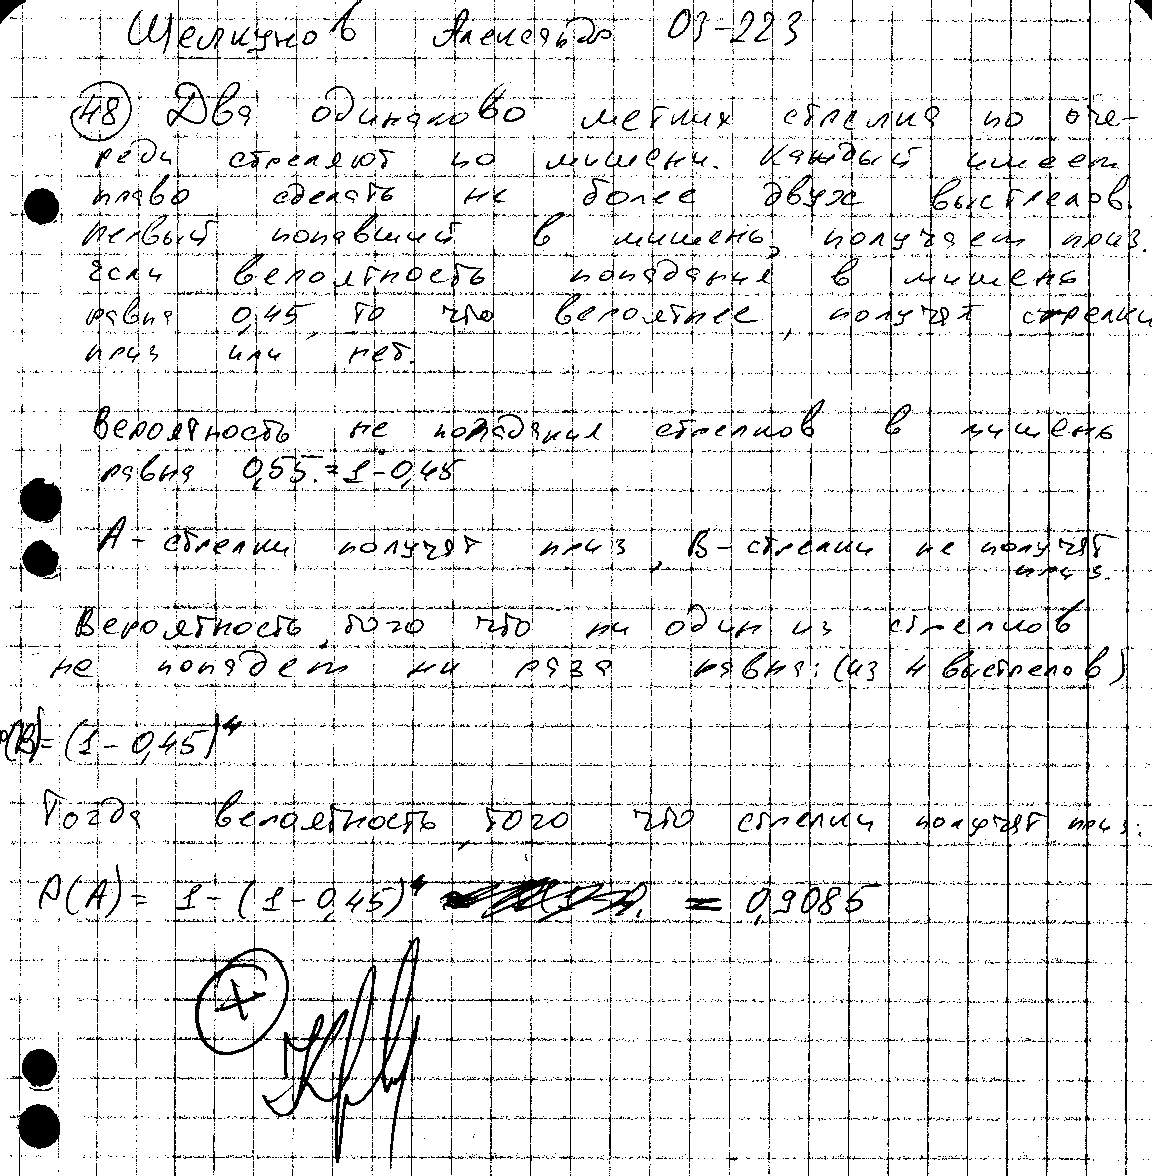 Шелкунов Александр 03-223
48 Два одинаково метких стрелка по оче-
реди стреляют по мишени. Каждый имеет
право сделать не более двух выстрелов.
Первый попавший в мишень, получает приз.
Если вероятность попадания в мишень
равна 0,45, то что вероятнее, получат стрелки
приз или нет.
Вероятность не попадания стрелков в мишень
равна 0,55.=1-0,45
А - стрелки получат приз, В - стрелки не получат
приз.
Вероятность, того что ни один из стрелков
не попадет ни раза равна: (из 4 выстрелов)
P(B)= (1-0,45)⁴
Тогда вероятность, того что стрелки получат приз:
P(A)= 1-(1-0,45)⁴ = 0,9085
+